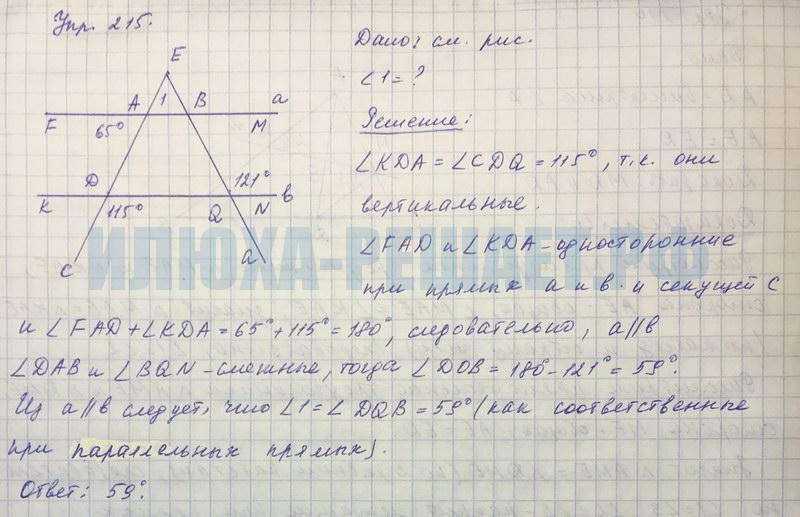 Упр. 215.
Дано: см. рис.
∠1 = ?
Решение:
∠KDA = ∠CDQ = 115°, т.к. они
вертикальные.
∠FAD и ∠KDA - односторонние
при прямых a и b и секущей C
и ∠FAD + ∠KDA = 65° + 115° = 180°, следовательно, a || b
∠DAB и ∠BQN - смежные, тогда ∠DQB = 180 - 121° = 59°.
Из a || b следует, что ∠1 = ∠DQB = 59° (как соответственные
при параллельных прямых).
Ответ: 59°.
E
A 1 B a
F 65° M
D 121° b
K 115° Q N
C d
ИЛЮХА-РЕШАЕТ.РФ